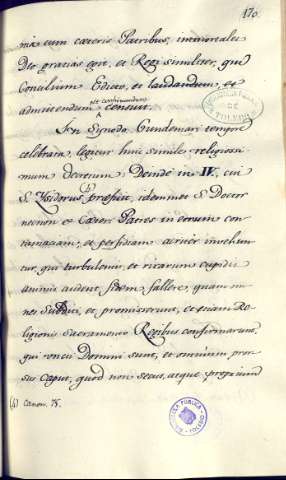 170.
nia cum cæteris Patribus, immortales
Deo gratias egit, et Regi similiter, qui
Concilium Edicto, et laudandum, et
admittendum et confirmandum censuit.
In Synodo Gundemari tempore
celebrata, legitur huic simile religiosis-
simum decretum. Deinde in IV, cui
S. Ysidorus (b) præfuit, idemmet S. Doctor
necnon et Cæteri Patres in eorum con-
tumaciam, et perfidiam acriter invehun-
tur, qui turbulenti, et rixarum cupidis
animis audent fidem fallere, quam om-
nes Subditi, et promisserunt, et etiam Re-
ligionis Sacramento Regibus confirmarunt,
qui Domini sunt, et omnium pror-
sus Caput, quod non secus, atque proprium
(b) Canon. 75.
BIBLIOTECA PUBLICA
TOLEDO
DE
TOLEDO